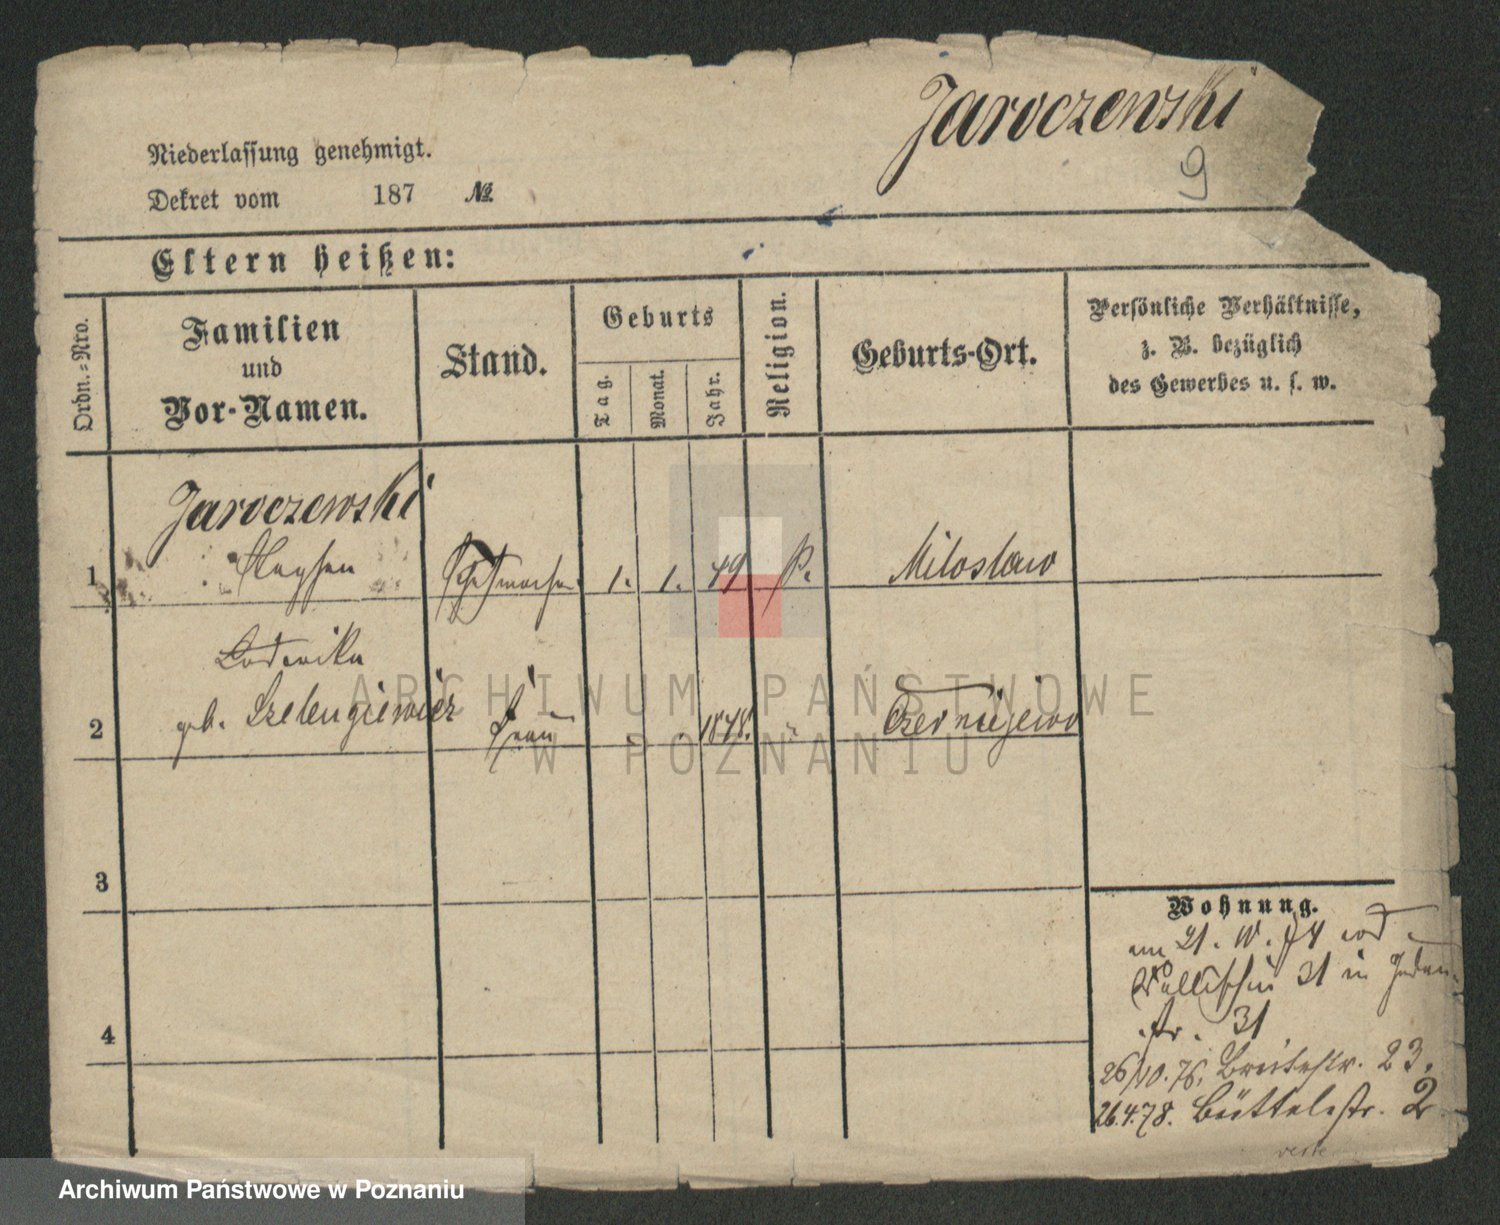 Jaroczewski
9
Niederlassung genehmigt.
Dekret vom 187 №
Eltern heißen:
Ordn.-Nro.
Familien
und
Vor-Namen.
Stand.
Geburts
Tag.
Monat.
Jahr.
Religion.
Geburts-Ort.
Persönliche Verhältnisse,
z. B. bezüglich
des Gewerbes u. s. w.
Jaroczewski
1 1. 1. 49 P. Miloslaw
Ludwika
2 geb. Frau 1848. " Czerniejewo
3
4
Wohnung.
21. 74
Wallischei 31 in Juden-
str. 31
26/10. 76. Breitestr. 23.
26.4.78. Büttelstr. 2
ARCHIWUM PAŃSTWOWE
W POZNANIU
Archiwum Państwowe w Poznaniu